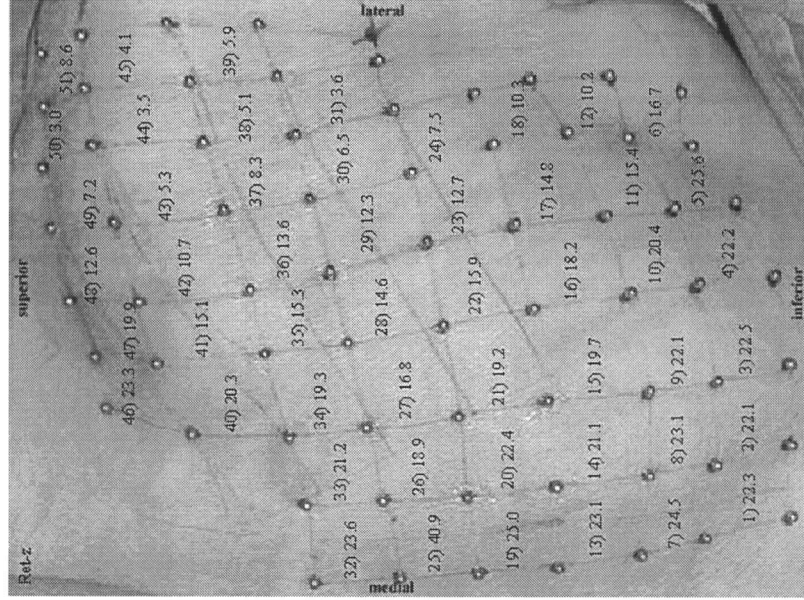 Ret-z
superior
lateral
medial
inferior
1) 22.3
2) 22.1
3) 22.5
4) 22.2
5) 25.6
6) 16.7
7) 24.5
8) 23.1
9) 22.1
10) 20.4
11) 15.4
12) 10.2
13) 23.1
14) 21.1
15) 19.7
16) 18.2
17) 14.8
18) 10.3
19) 25.0
20) 22.4
21) 19.2
22) 15.9
23) 12.7
24) 7.5
25) 40.9
26) 18.9
27) 16.8
28) 14.6
29) 12.3
30) 6.5
31) 3.6
32) 23.6
33) 21.2
34) 19.3
35) 15.3
36) 13.6
37) 8.3
38) 5.1
39) 5.9
40) 20.3
41) 15.1
42) 10.7
43) 5.3
44) 3.5
45) 4.1
46) 23.3
47) 19.9
48) 12.6
49) 7.2
50) 3.0
51) 8.6